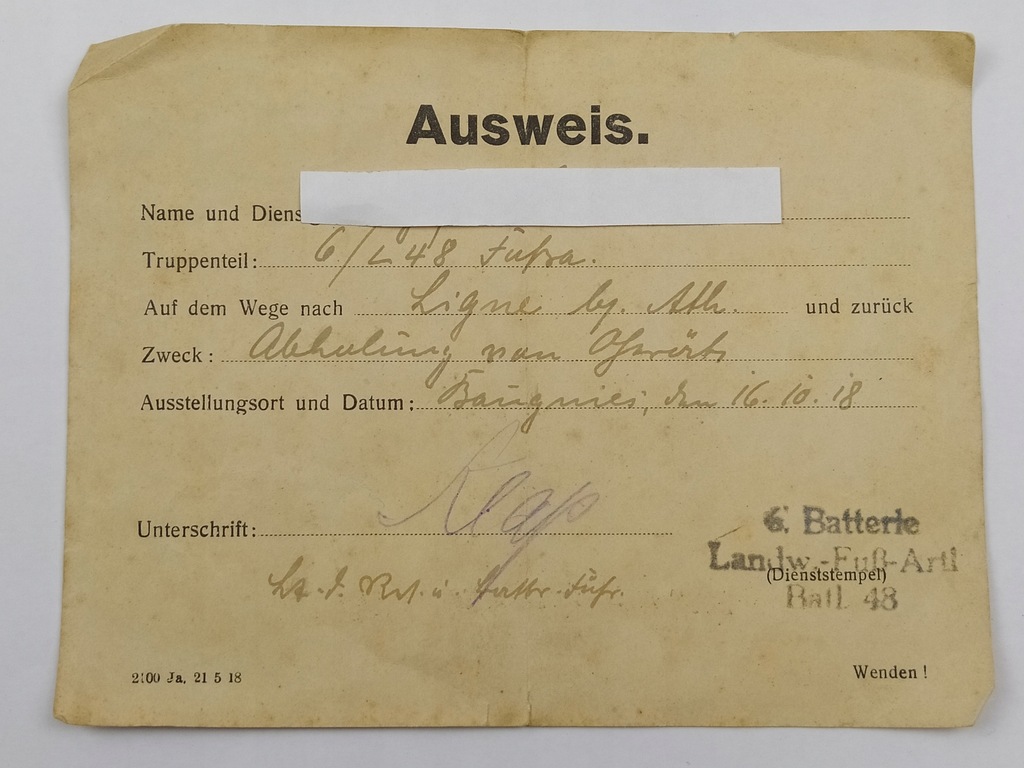 Ausweis.
Name und Diens
Truppenteil: 6/L 48 Fußa.
Auf dem Wege nach Ligne bj. Ath. und zurück
Zweck: Abholung von Gerät
Ausstellungsort und Datum: Baugnies, den 16.10.18
Unterschrift:
Lt. d. Res. u. Battr. Führ.
6. Batterie
Landw.-Fuß-Artl
(Dienststempel)
Batl. 48
2100 Ja, 21 5 18
Wenden!